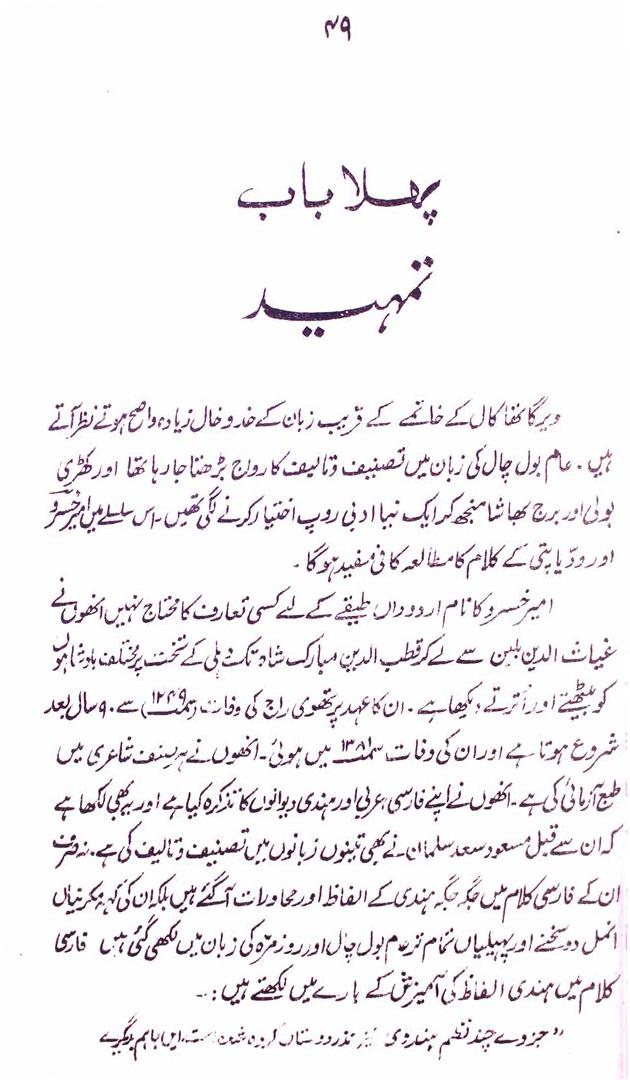 ۴۹
پہلا باب
تمہید
ویرگاتھا کال کے خاتمے کے قریب زبان کے خدوخال زیادہ واضح ہوتے نظر آتے
ہیں۔ عام بول چال کی زبان میں تصنیف وتالیف کا رواج بڑھتا جا رہا تھا اور کھڑی
بولی اور برج بھاشا منجھ کر ایک نیا ادبی روپ اختیار کرنے لگی تھیں۔ اس سلسلے میں امیر خسرو
اور ودیاپتی کے کلام کا مطالعہ کافی مفید ہوگا۔
امیر خسرو کا نام اردوداں طبقے کے لیے کسی تعارف کا محتاج نہیں انھوں نے
غیاث الدین بلبن سے لے کر قطب الدین مبارک شاہ تک دہلی کے تخت پر مختلف بادشاہوں
کو بیٹھتے اور اترتے دیکھا ہے۔ ان کا عہد پرتھوی راج کی وفات (سمت ۱۲۴۹) سے ۹۰ سال بعد
شروع ہوتا ہے اور ان کی وفات سمت ۱۳۸۱ میں ہوئی۔ انھوں نے ہر صنف شاعری میں
طبع آزمائی کی ہے۔ انھوں نے اپنے فارسی، عربی اور ہندی دیوانوں کا تذکرہ کیا ہے اور یہ بھی لکھا ہے
کہ ان سے قبل مسعود سعد سلمان نے بھی تینوں زبانوں میں تصنیف وتالیف کی ہے۔ نہ صرف
ان کے فارسی کلام میں جگہ جگہ ہندی کے الفاظ اور محاورات آگئے ہیں بلکہ ان کی کہہ مکرنیاں
انمل دوسخنے اور پہیلیاں تمام تر عام بول چال اور روزمرہ کی زبان میں لکھی گئی ہیں فارسی
کلام میں ہندی الفاظ کی آمیزش کے بارے میں لکھتے ہیں:۔
"جزوے چند نظم ہندوی نیز نذر دوستاں کردہ شدہ است، ایں جا ہم